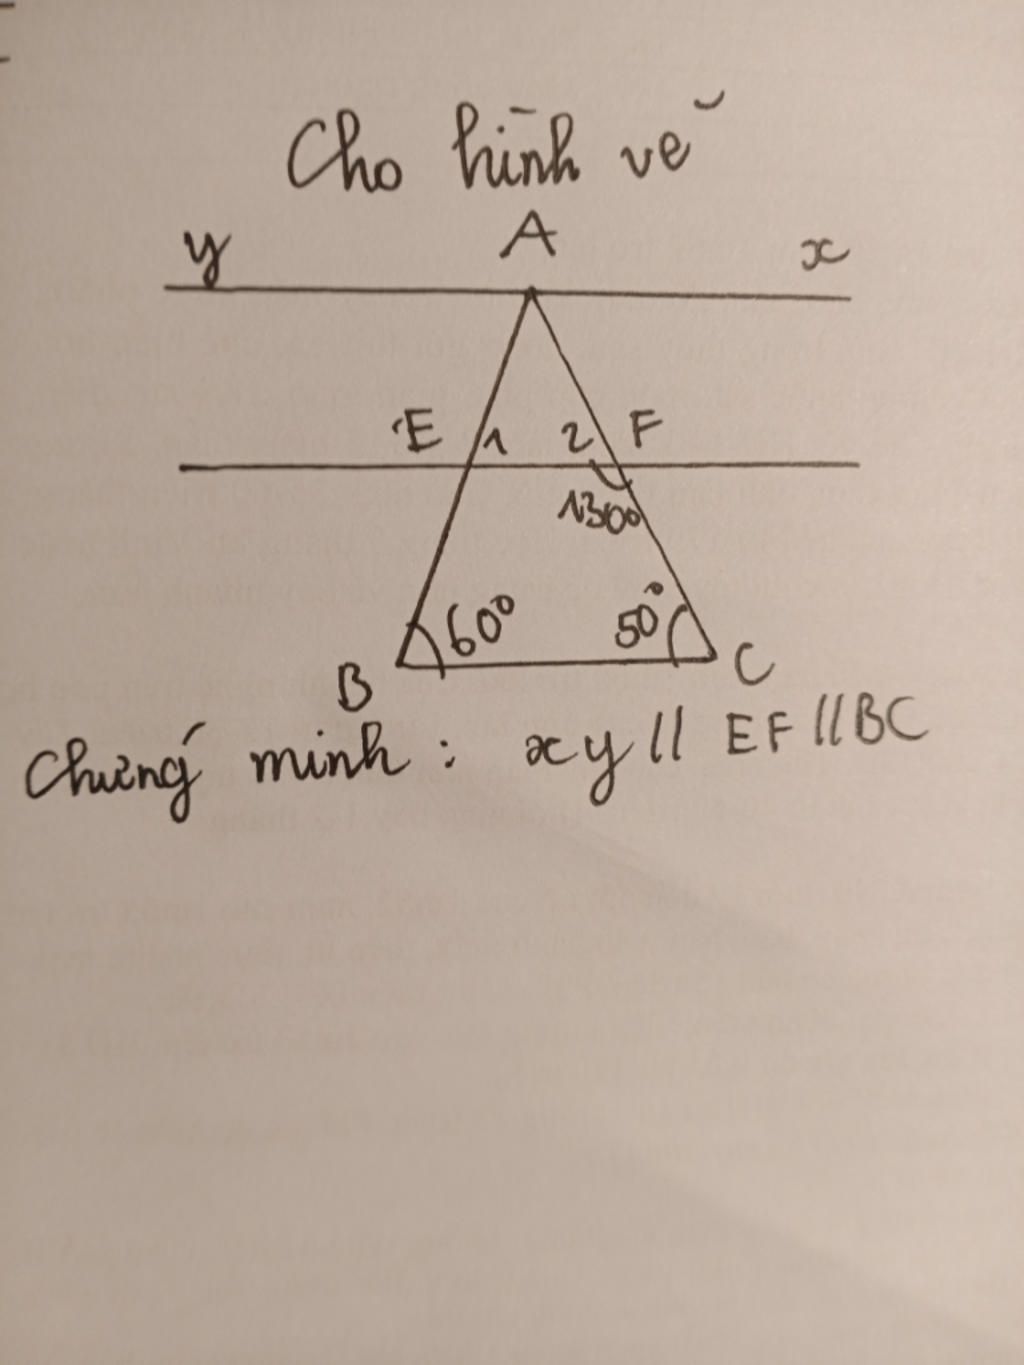 Cho hình vẽ
y A x
E 1 2 F
130°
60° 50°
B C
Chứng minh : xy // EF // BC